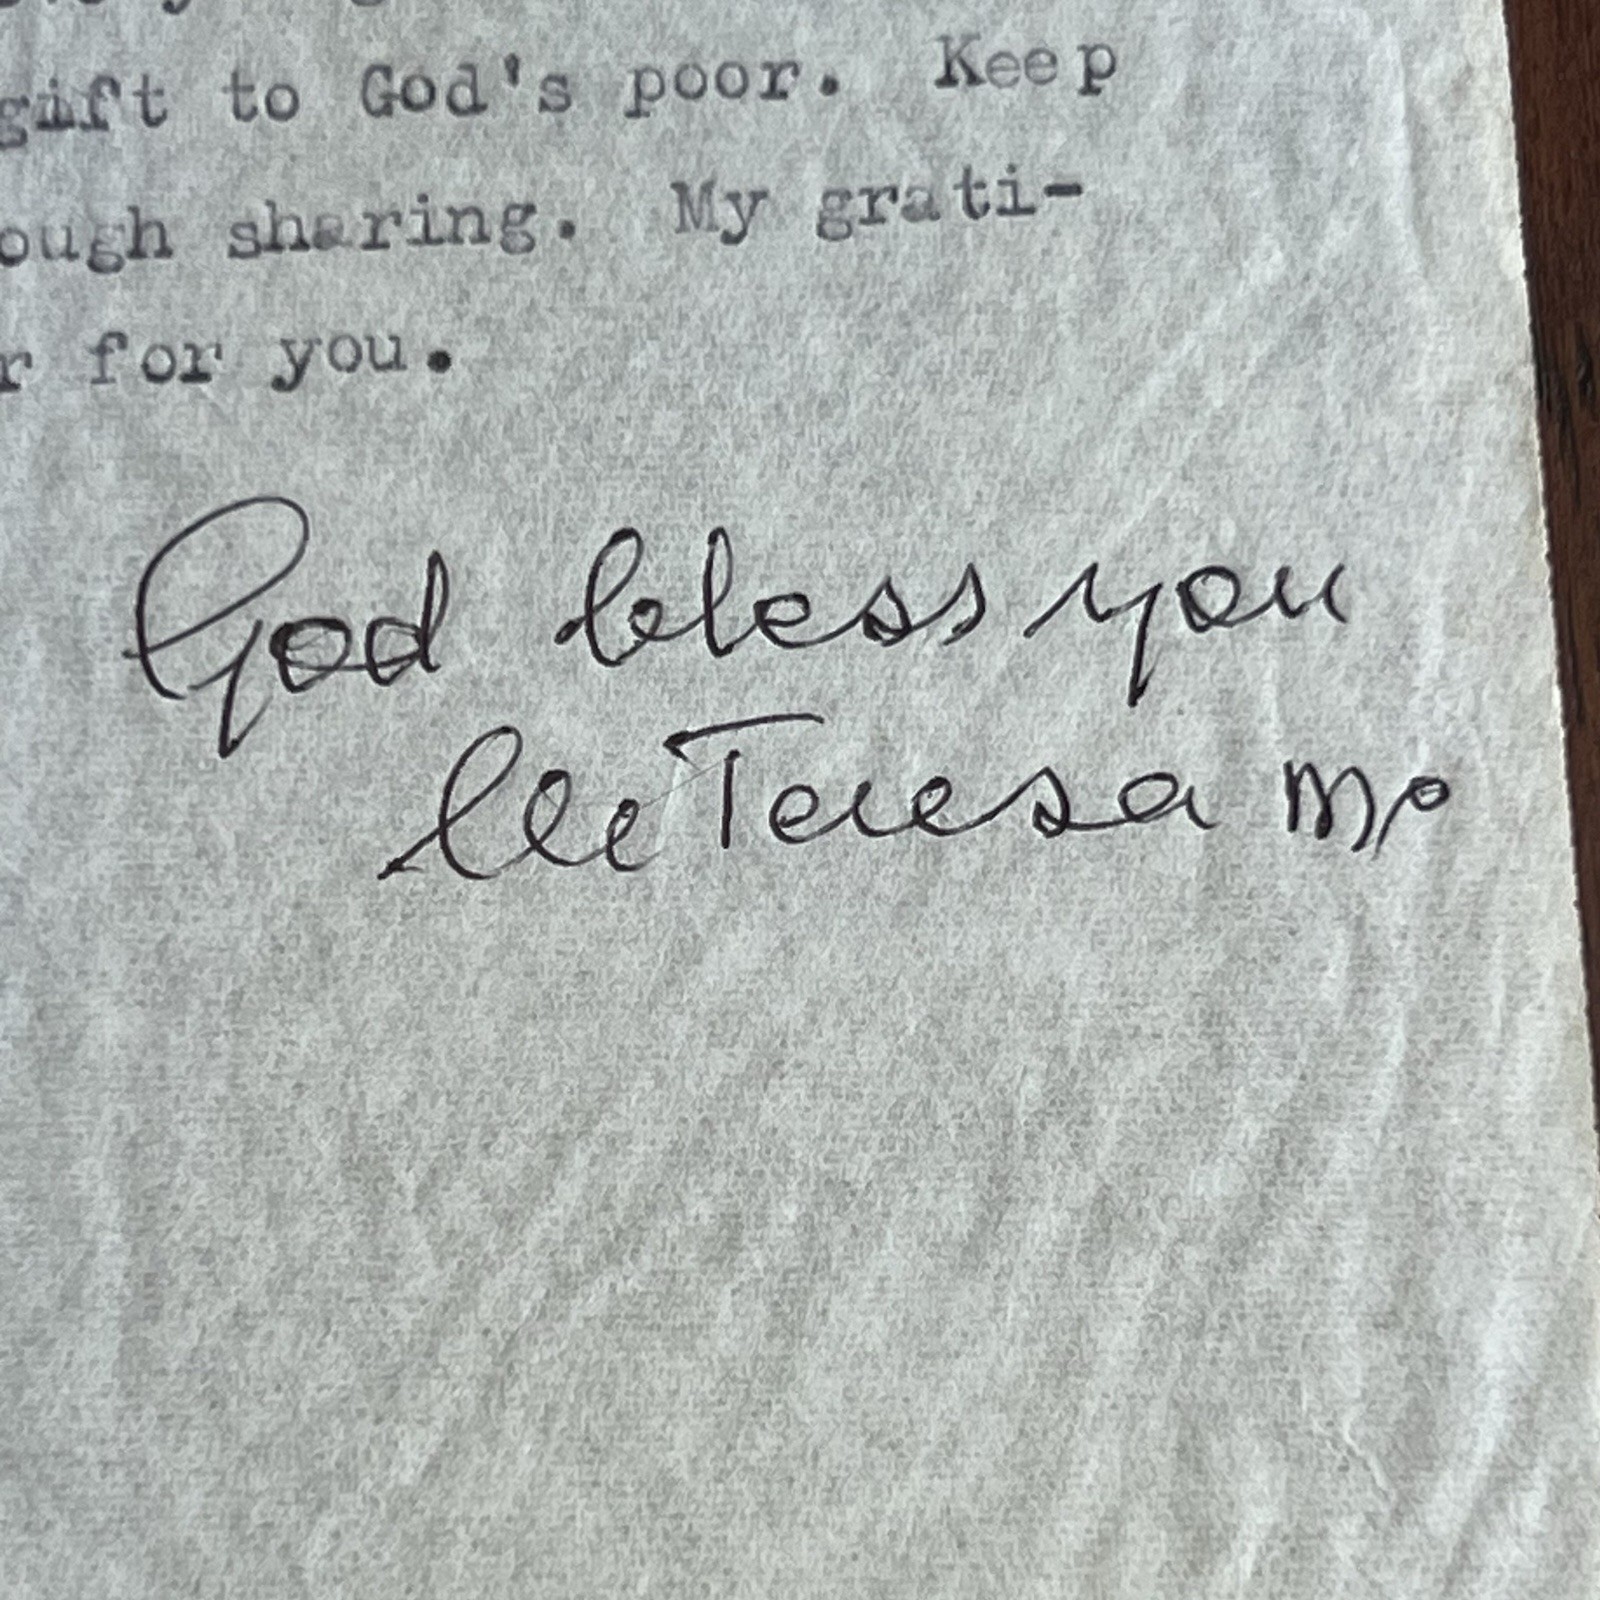 gift to God's poor. Keep
ough sharing. My grati-
r for you.
God bless you
lle Teresa mc